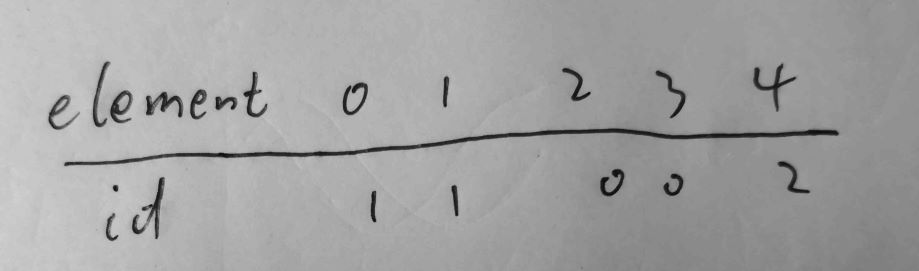 element 0 1 2 3 4
id 1 1 0 0 2